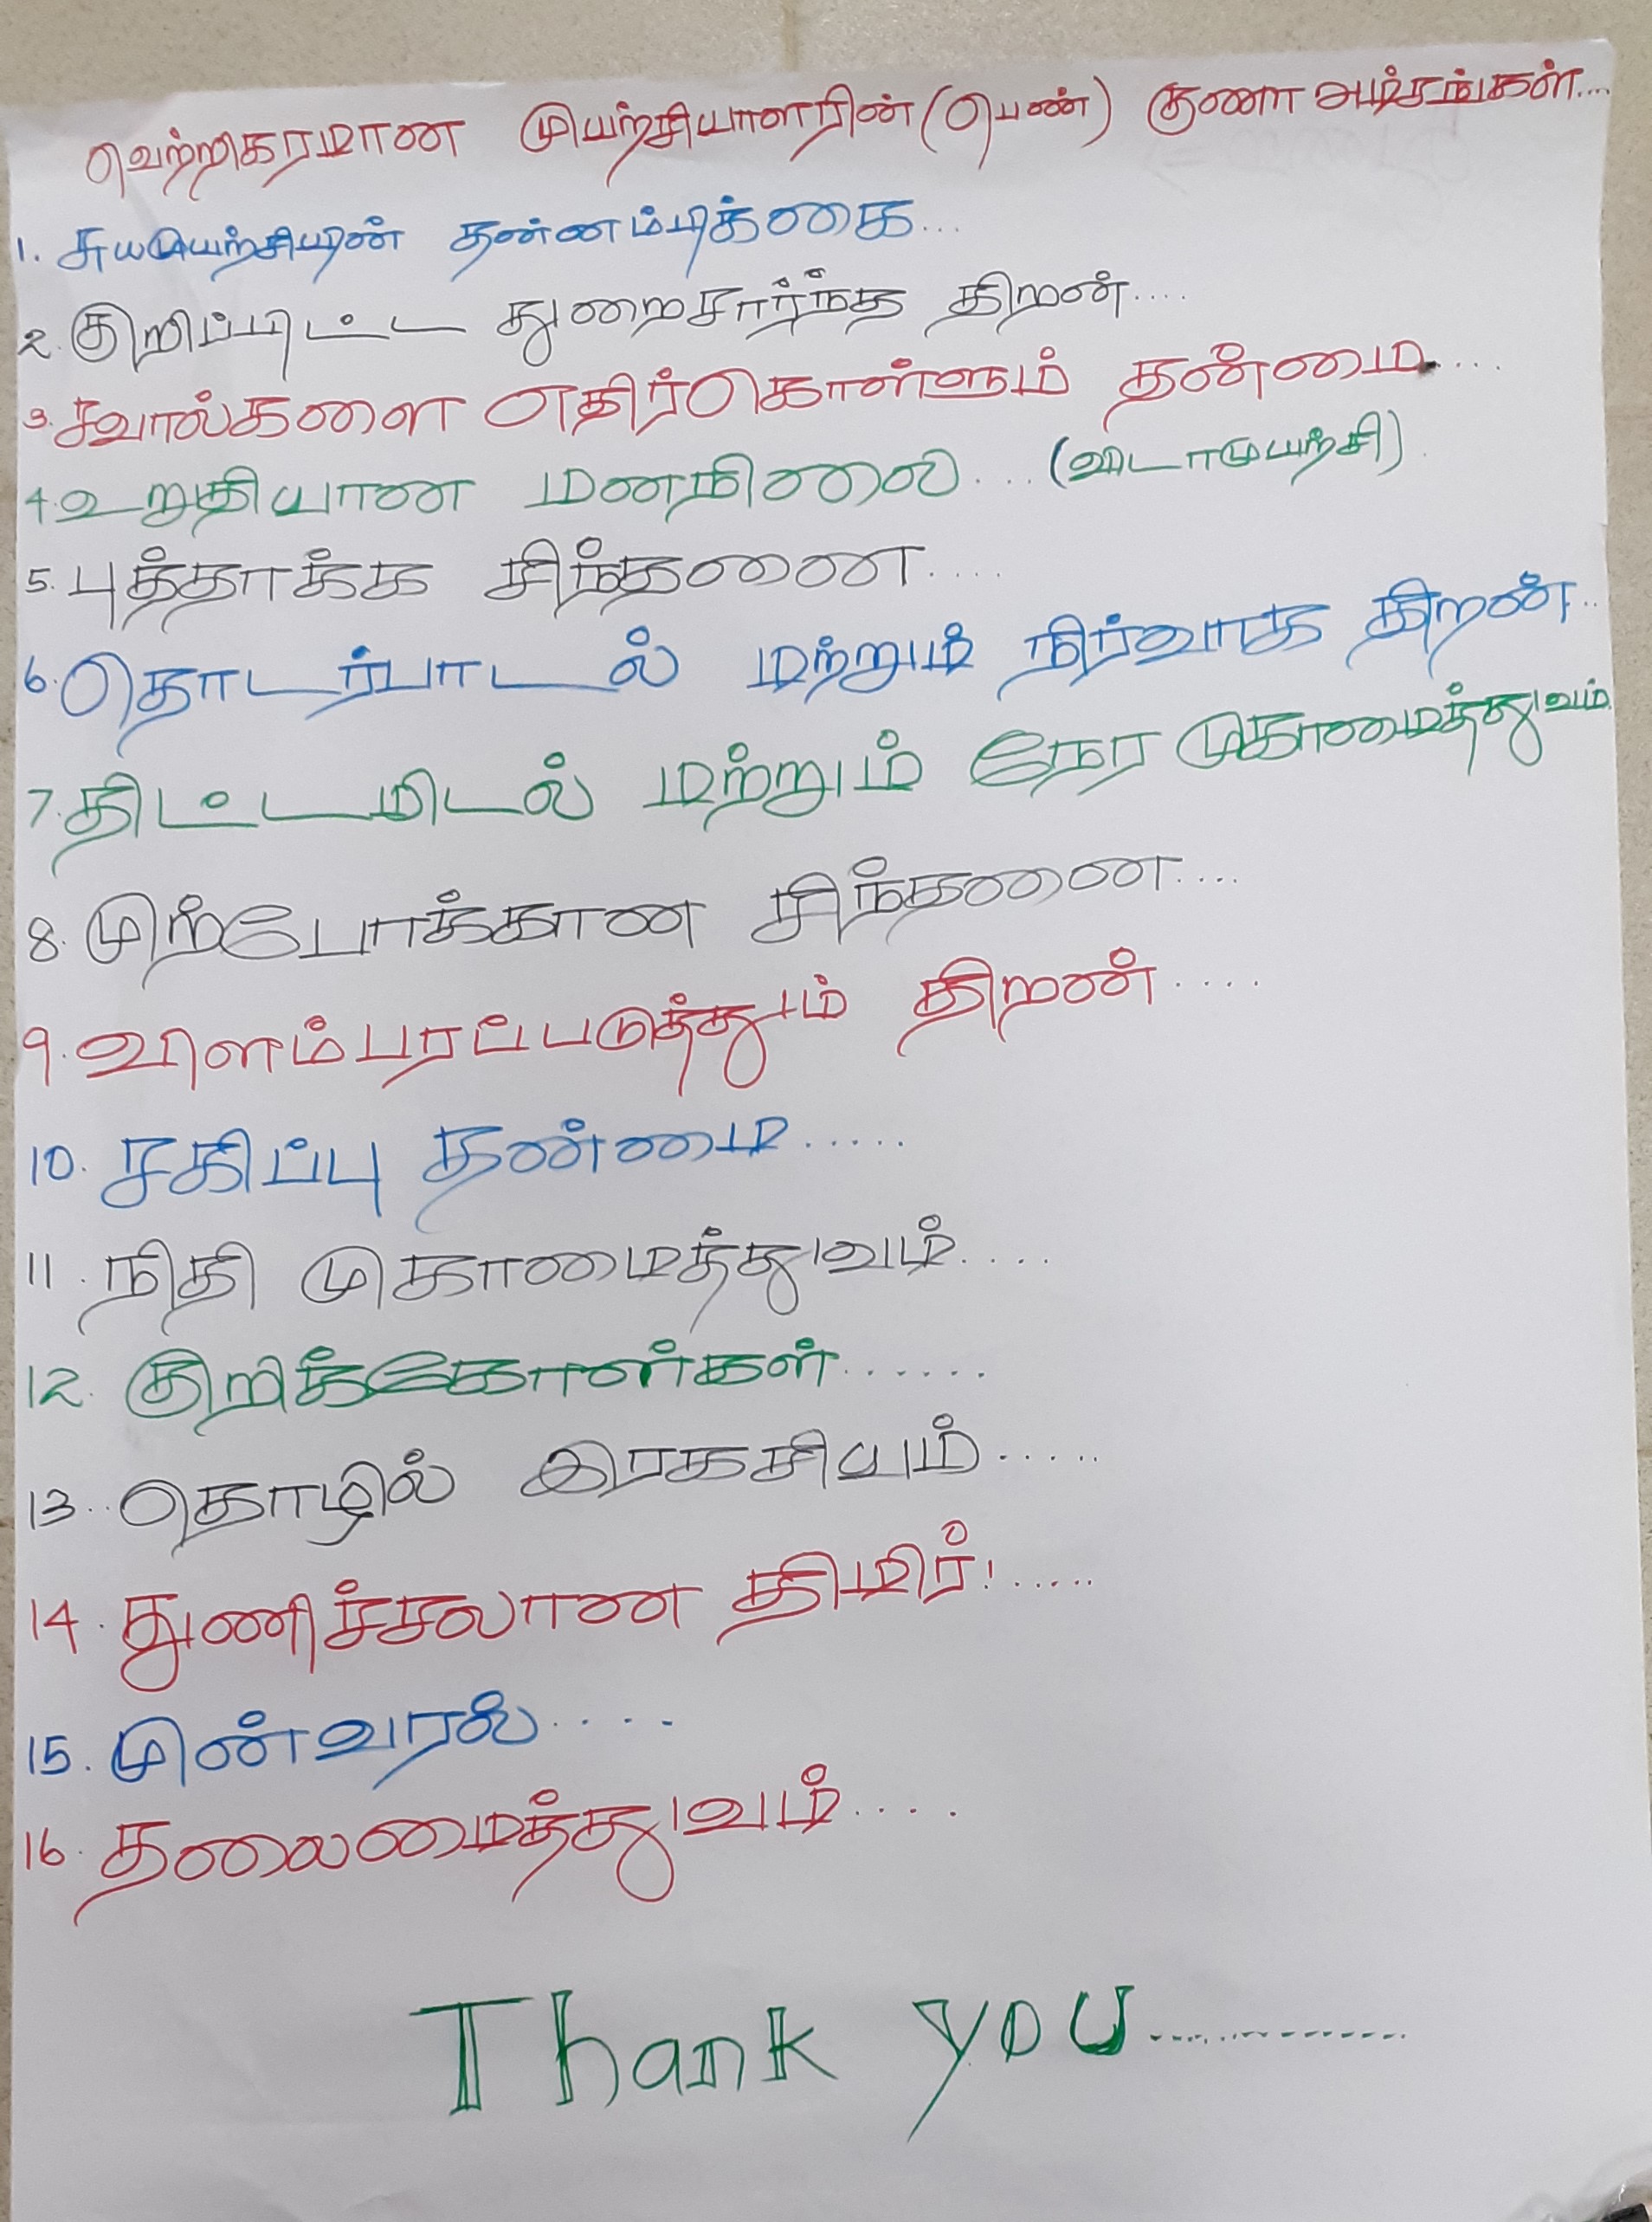 வெற்றிகரமான முயற்சியாளரின் (பெண்) குணா அம்சங்கள்....
1. சுயமுயற்சியின் தன்னம்பிக்கை...
2. குறிப்பிட்ட துறைசார்ந்த திறன்....
3. சவால்களை எதிர்கொள்ளும் தன்மை....
4. உறுதியான மனநிலை.... (விடாமுயற்சி)
5. புத்தாக்க சிந்தனை....
6. தொடர்பாடல் மற்றும் நிர்வாக திறன்...
7. திட்டமிடல் மற்றும் நேர முகாமைத்துவம்
8. முற்போக்கான சிந்தனை....
9. விளம்பரப்படுத்தும் திறன்....
10. சகிப்பு தன்மை.....
11. நிதி முகாமைத்துவம்....
12. குறிக்கோள்கள்......
13. தொழில் இரகசியம்.....
14. துணிச்சலான திமிர்!.....
15. முன்வரல்....
16. தலைமைத்துவம்....
Thank you..............